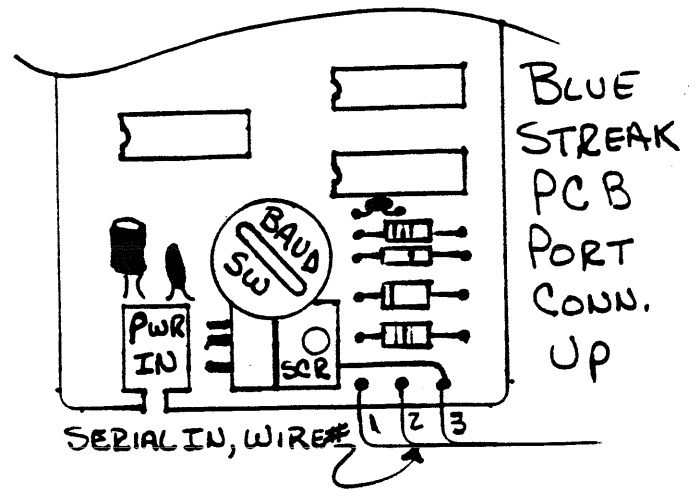 BLUE
STREAK
PCB
PORT
CONN.
UP
BAUD
SW
PWR
IN
SCR
1 2 3
SERIAL IN, WIRE#